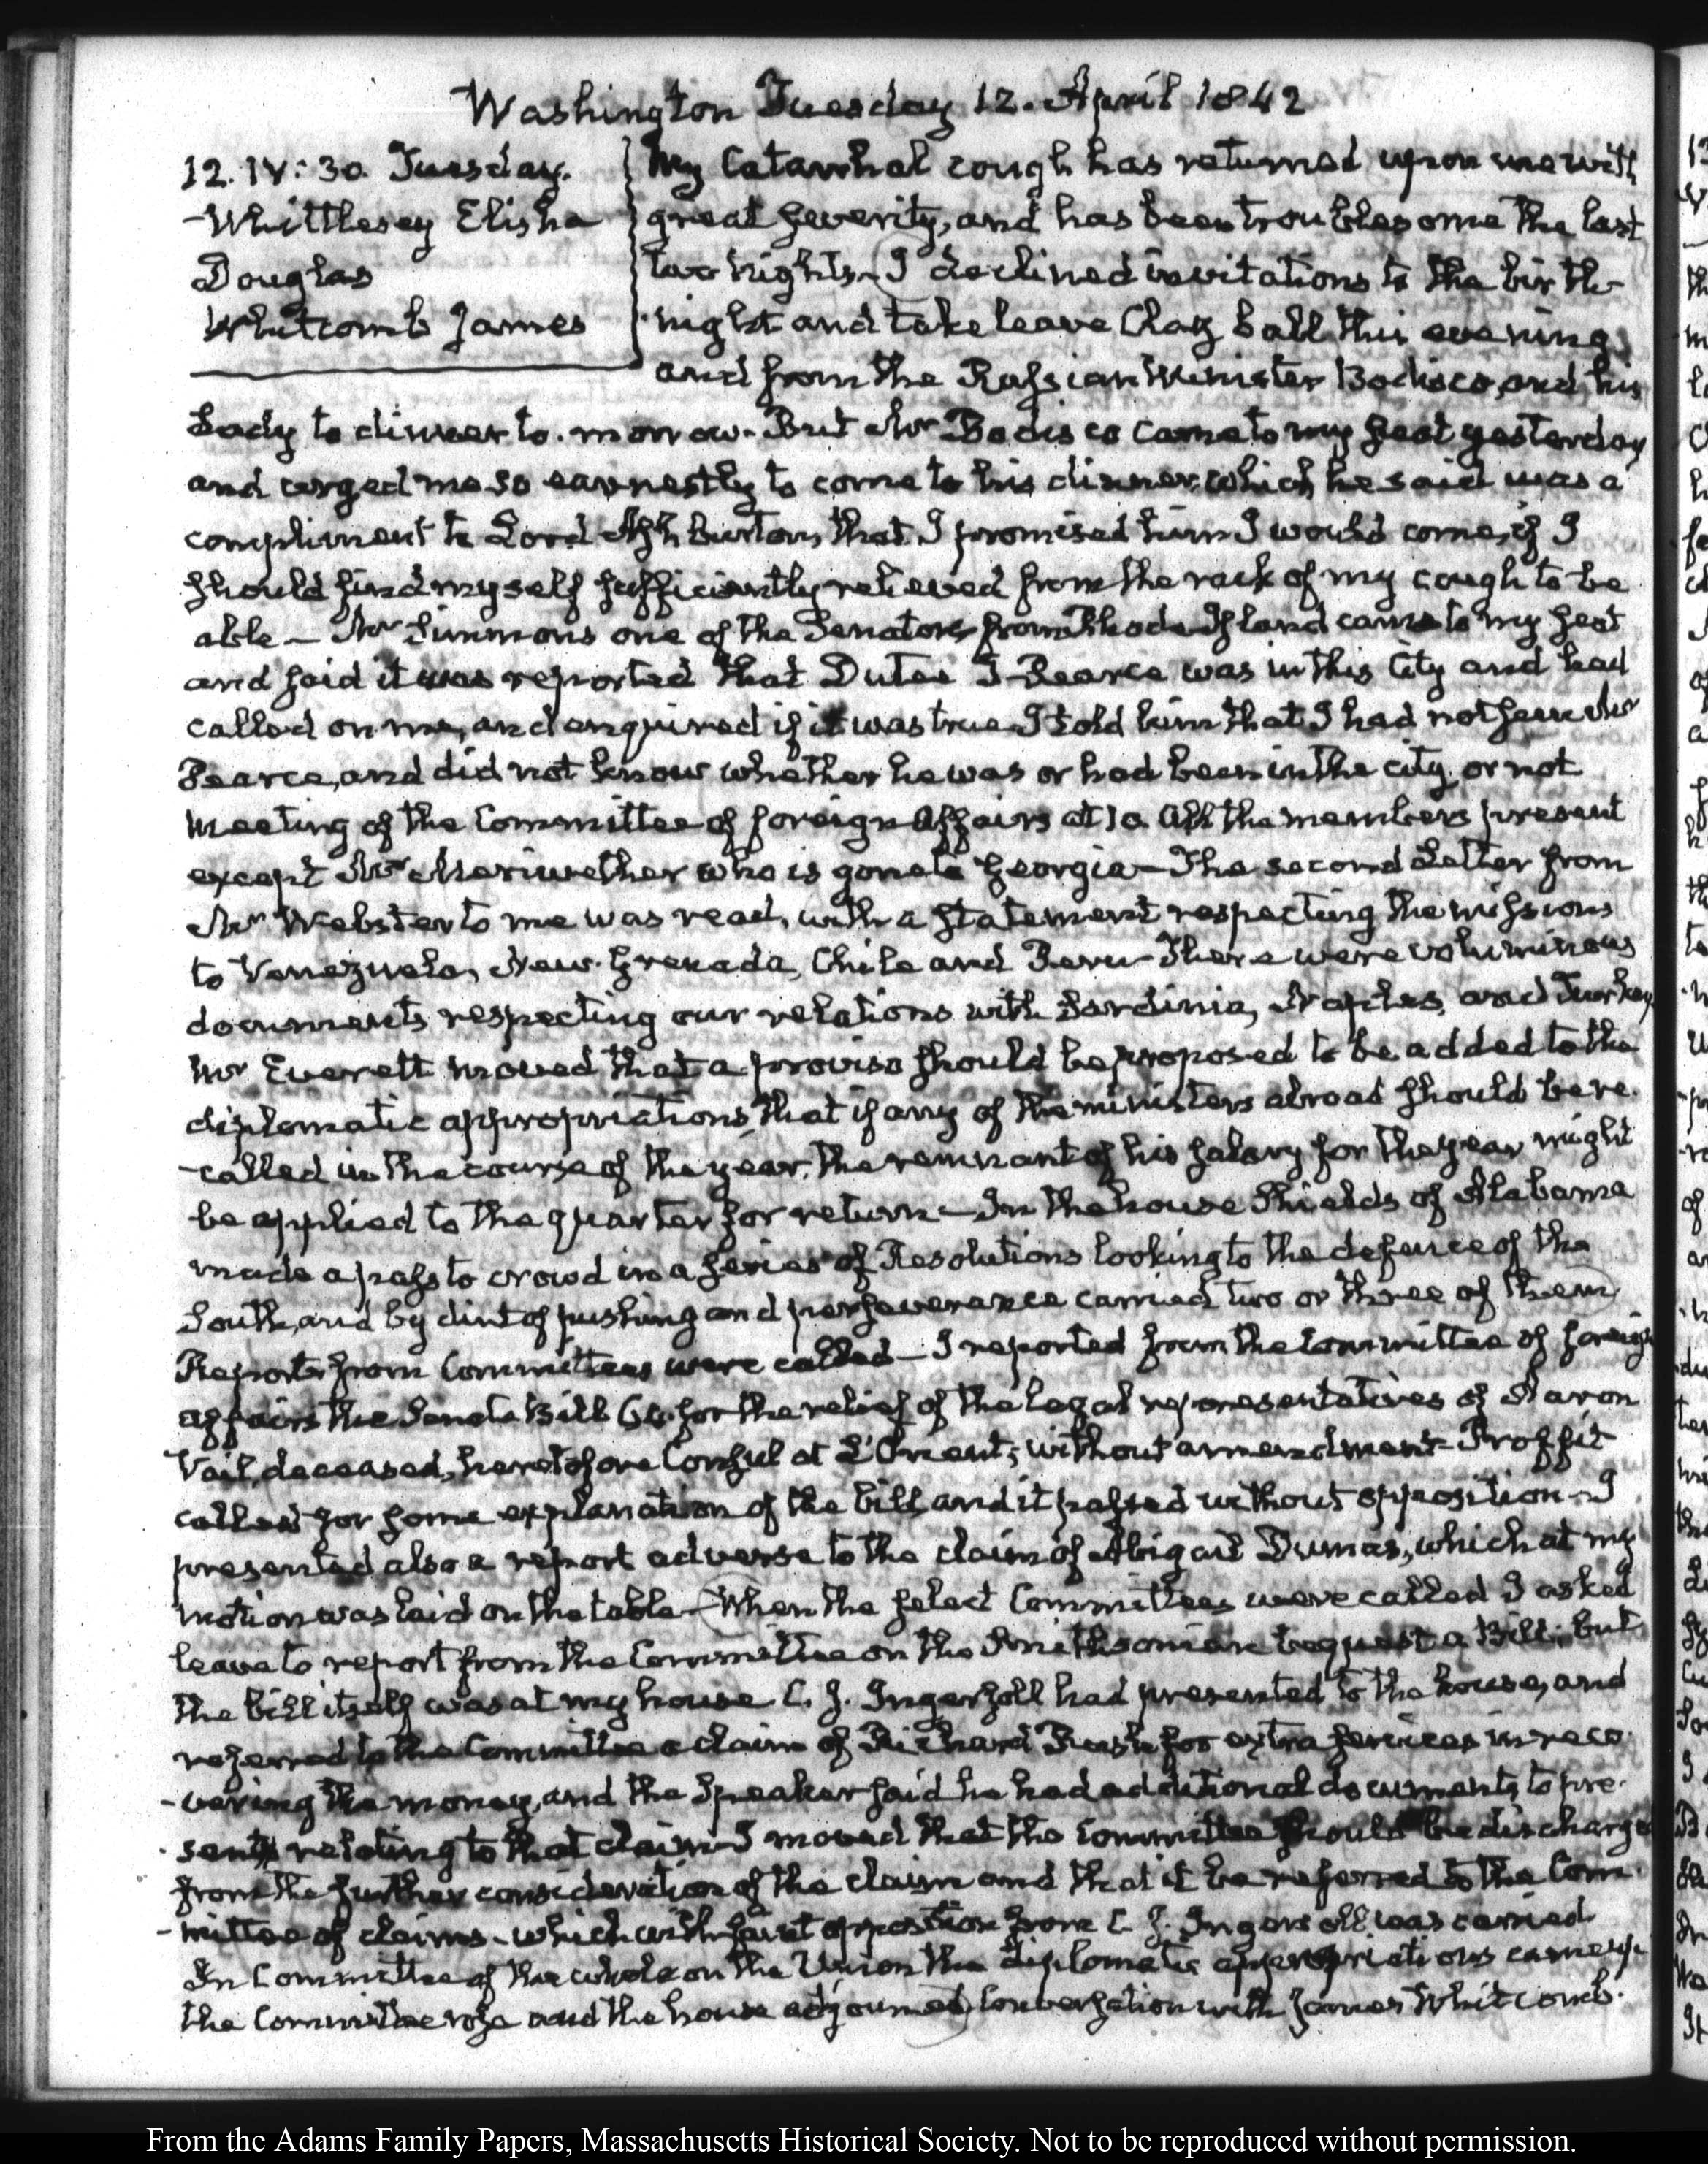 Washington Tuesday 12. April 1842
12. IV: 30. Tuesday.
Whittlesey Elisha
Douglas
Whitcomb James
My Catarrhal cough has returned upon me with
great severity, and has been troublesome the last
two nights— I declined invitations to the birth-
night and take leave Clay ball this evening
and from the Russian Minister Bodisco, and his
Lady to dinner to-morrow— But Mr Bodisco came to my seat yesterday
and urged me so earnestly to come to his dinner, which he said was a
compliment to Lord Ashburton, that I promised him I would come, if I
should find myself sufficiently relieved from the rack of my cough to be
able— Mr Simmons one of the Senators from Rhode-Island came to my seat
and said it was reported that Dutee J Pearce was in this City and had
called on me, and enquired if it was true— I told him that I had not seen Mr
Pearce, and did not know whether he was or had been in the city, or not
Meeting of the Committee of foreign Affairs at 10. All the members present
except Mr Meriwether who is gone to Georgia— The second Letter from
Mr Webster to me was read, with a statement respecting the missions
to Venezuela, New-Grenada, Chile and Peru— There were voluminous
documents respecting our relations with Sardinia, Naples, and Turkey
Mr Everett moved that a proviso should be proposed to be added to the
diplomatic appropriations, that if any of the ministers abroad should be re-
-called in the course of the year, the remnant of his salary for the year might
be applied to the quarter for return— In the house Shields of Alabama
made a pass to crowd in a series of Resolutions looking to the defence of the
South, and by dint of pushing and perseverance carried two or three of them
Reports from Committees were called— I reported from the Committee of foreign
affairs the Senate Bill 64. for the relief of the legal representatives of Aaron
Vail, deceased, heretofore Consul at L'Orient; without amendment— Proffit
called for some explanation of the bill and it passed without opposition— I
presented also a report adverse to the claim of Abigail Dumas, which at my
motion was laid on the table— When the select Committees were called I asked
leave to report from the Committee on the Smithsonian bequest a Bill; but
the bill itself was at my house C. J. Ingersoll had presented to the house, and
referred to the Committee a claim of Richard Rush for extra services in reco-
-vering the money, and the Speaker said he had additional documents to pre-
-sent, relating to that claim— I moved that the Committee should be discharged
from the further consideration of the claim and that it be referred to the Com-
-mittee of claims— which with faint opposition from C. J. Ingersoll was carried
In Committee of the whole on the Union the diplomatic appropriations came up.
the Committee rose and the house adjourned Conversation with James Whitcomb.
From the Adams Family Papers, Massachusetts Historical Society. Not to be reproduced without permission.